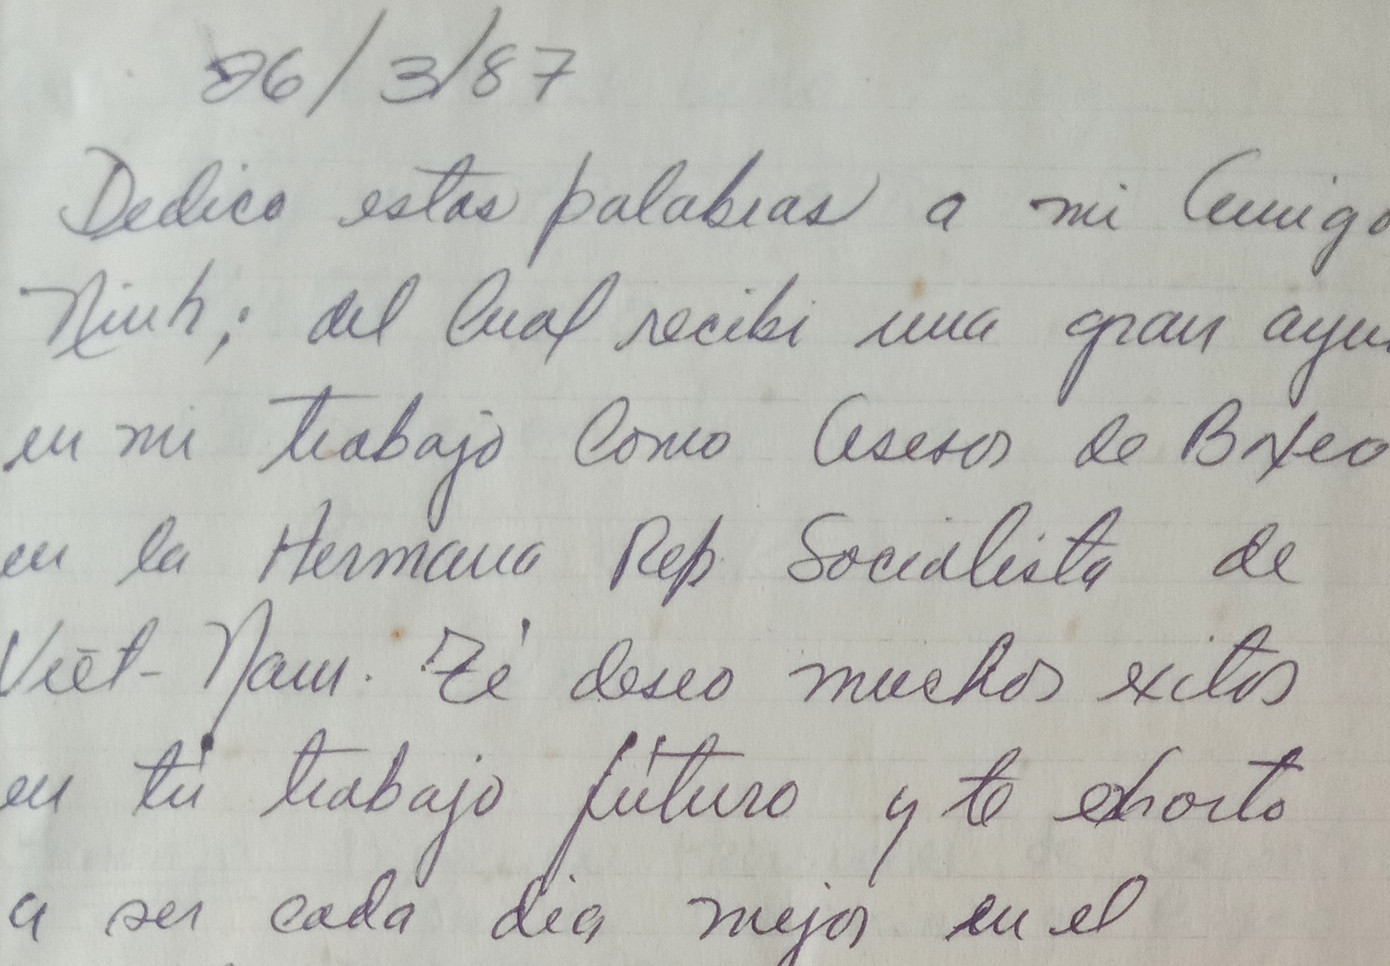 26/3/87
Dedico estas palabras a mi Amigo
Ninh; del Cual recibi una gran ayu
en mi trabajo Como Asesor de Boxeo
en la Hermana Rep. Socialista de
Viet-Nam. Té deseo muchos exitos
en tú trabajo fúturo y te exhorto
a ser cada dia mejor en el